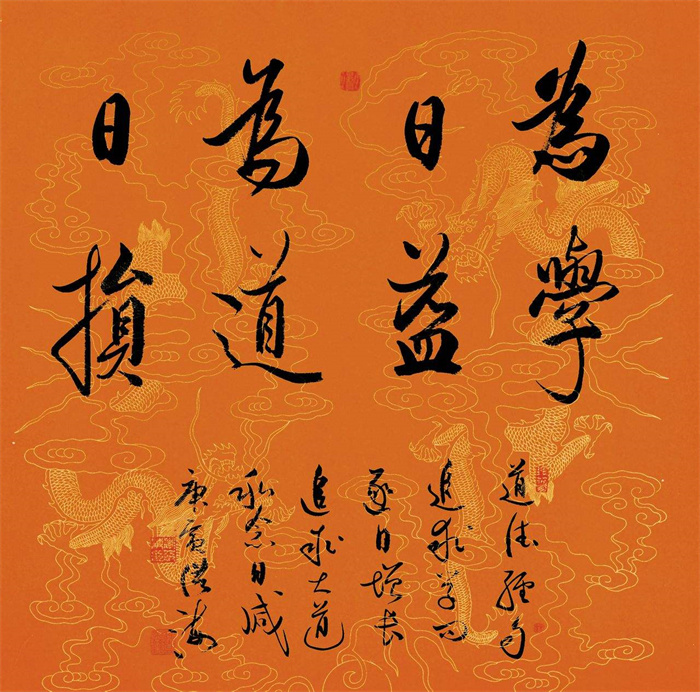 為學
日益
為道
日損
道德經句
追求學問
逐日增長
追求大道
私念日減
庚寅